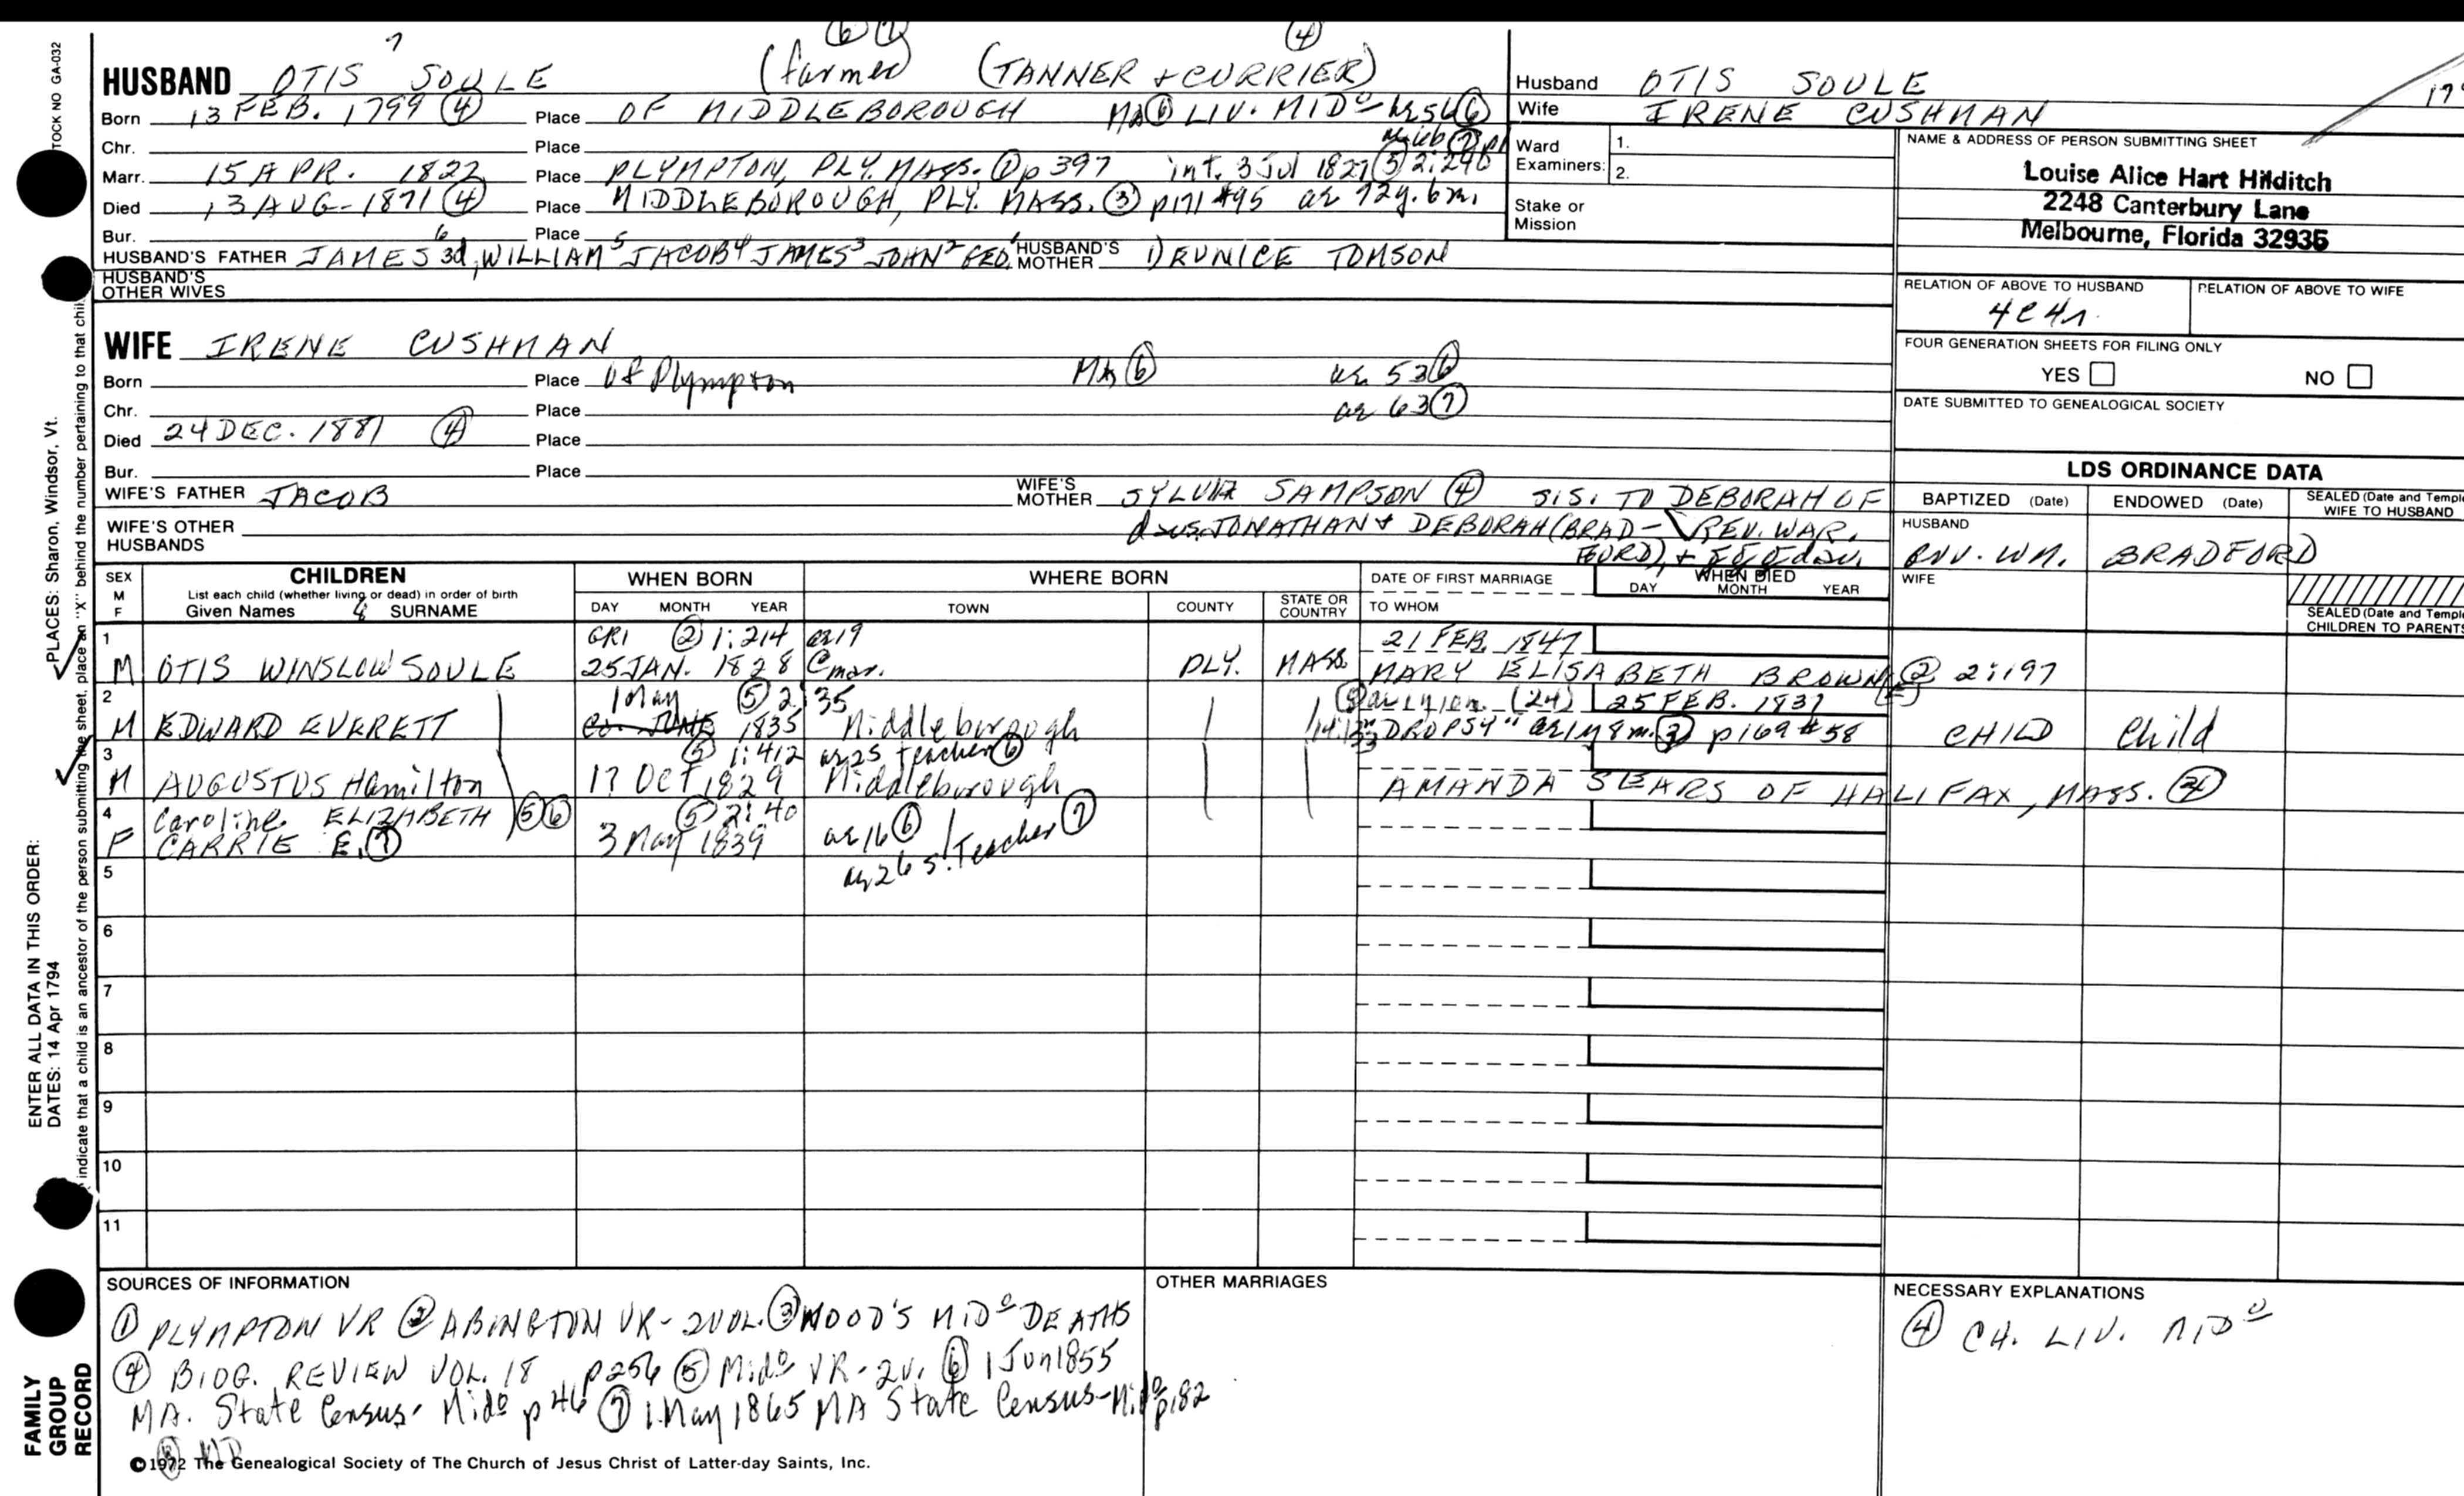 TOCK NO GA-032
PLACES: Sharon, Windsor, Vt.
ENTER ALL DATA IN THIS ORDER:
DATES: 14 Apr 1794
indicate that a child is an ancestor of the person submitting the sheet, place an "X" behind the number pertaining to that chil
FAMILY
GROUP
RECORD
7
⑥ ⑦ ④
HUSBAND OTIS SOULE (farmer) (TANNER + CURRIER)
Born 13 FEB. 1799 ④ Place OF MIDDLEBOROUGH MA ⑥ LIV. MIDo ae 56 ⑥
ae 66 ⑦
Chr. Place
Marr. 15 APR. 1822 Place PLYMPTON, PLY. MASS. ① p 397 int. 3 Jul 1827 ⑤ 2:240
Died 13 AUG-1871 ④ Place MIDDLEBOROUGH, PLY. MASS. ③ p171 #95 ae 72y. 6m.
Bur. Place
HUSBAND'S FATHER JAMES 3d 6, WILLIAM 5 JACOB 4 JAMES 3 JOHN 2 GEO. 1 HUSBAND'S MOTHER 1) EUNICE TOMSON
HUSBAND'S
OTHER WIVES
Husband OTIS SOULE
Wife IRENE CUSHMAN
Ward
Examiners:
1.
2.
Stake or
Mission
NAME & ADDRESS OF PERSON SUBMITTING SHEET
Louise Alice Hart Hilditch
2248 Canterbury Lane
Melbourne, Florida 32935
RELATION OF ABOVE TO HUSBAND RELATION OF ABOVE TO WIFE
4C4r.
FOUR GENERATION SHEETS FOR FILING ONLY
YES NO
DATE SUBMITTED TO GENEALOGICAL SOCIETY
WIFE IRENE CUSHMAN
Born Place of Plympton MA ⑥ ae 53 ⑥
Chr. Place ae 63 ⑦
Died 24 DEC. 1881 ④ Place
Bur. Place
WIFE'S FATHER JACOB WIFE'S MOTHER SYLVIA SAMPSON ④ SIS. TO DEBORAH OF
WIFE'S OTHER
HUSBANDS
JONATHAN + DEBORAH (BRAD- REV. WAR.
FORD), +
GOV. WM. BRADFORD
LDS ORDINANCE DATA
BAPTIZED (Date) ENDOWED (Date) SEALED (Date and Temple
WIFE TO HUSBAND
HUSBAND
WIFE
SEALED (Date and Temple
CHILDREN TO PARENTS
SEX
M
F
CHILDREN
List each child (whether living or dead) in order of birth
Given Names SURNAME
WHEN BORN
DAY MONTH YEAR
WHERE BORN
TOWN COUNTY STATE OR COUNTRY
DATE OF FIRST MARRIAGE
TO WHOM
WHEN DIED
DAY MONTH YEAR
1 GRI ② 1:214 ae19 21 FEB. 1847
M OTIS WINSLOW SOULE 25 JAN. 1828 @mar. PLY. MASS. MARY ELISABETH BROWN ② 2:197
2 1 May ⑤ 2:35 (24) 25 FEB. 1837
M EDWARD EVERETT ca. JUNE 1835 Middleborough "DROPSY" ae 1y 8m. ③ p169 #58 CHILD Child
3 ⑤ 1:412 ae 25 teacher ⑥
M AUGUSTUS Hamilton 17 Oct 1829 Middleborough AMANDA SEARS OF HALIFAX, MASS. ④
4 Caroline ELIZABETH ⑤⑥ ⑤ 2:40 ae 16 ⑥
F CARRIE E. ⑦ 3 May 1839 ae 26 s. Teacher ⑦
5
6
7
8
9
10
11
SOURCES OF INFORMATION
① PLYMPTON VR ② ABINGTON VR-2VOL. ③ WOOD'S MIDo DEATHS
④ BIOG. REVIEW VOL. 18 p256 ⑤ Mido VR-2v. ⑥ 1 Jun 1855
MA. State Census- Mido p 46 ⑦ 1 May 1865 MA State Census-Mido p182
OTHER MARRIAGES
NECESSARY EXPLANATIONS
④ CH. LIV. MIDo
©1972 The Genealogical Society of The Church of Jesus Christ of Latter-day Saints, Inc.